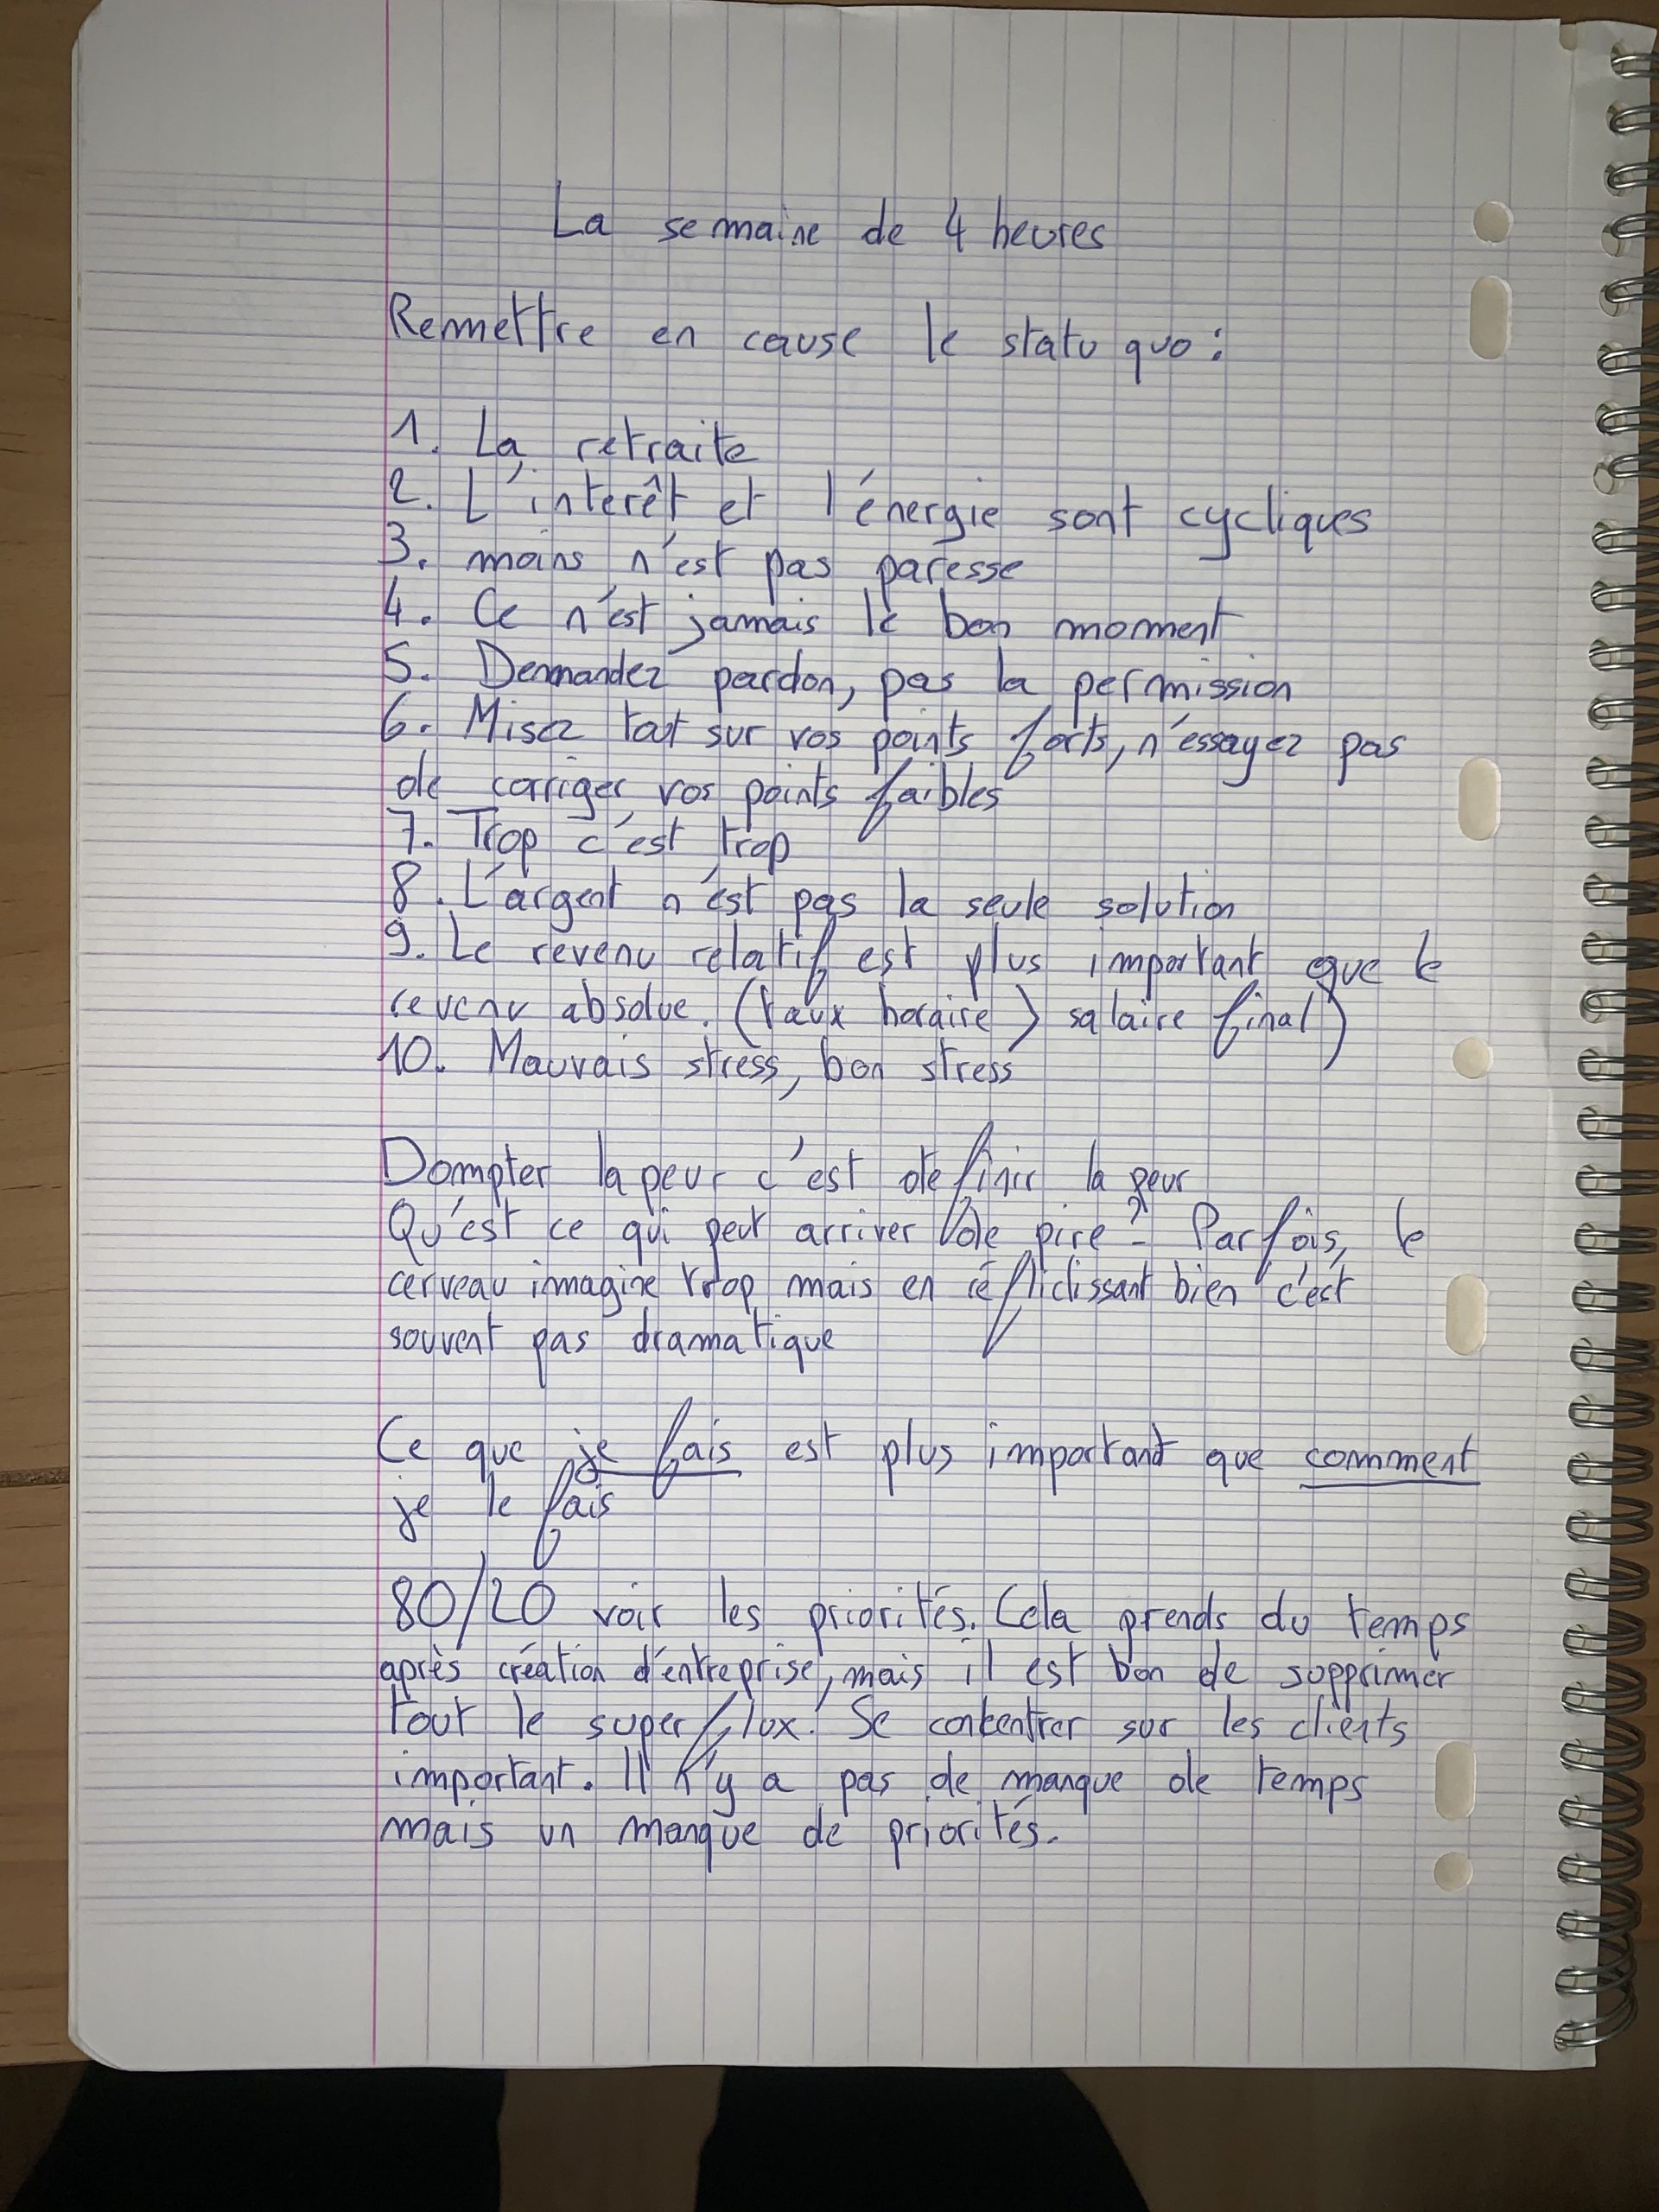 La semaine de 4 heures
Remettre en cause le statu quo :
1. La retraite
2. L'interêt et l'énergie sont cycliques
3. moins n'est pas paresse
4. Ce n'est jamais le bon moment
5. Demandez pardon, pas la permission
6. Misez tout sur vos points forts, n'essayez pas
de corriger vos points faibles
7. Trop c'est trop
8. L'argent n'est pas la seule solution
9. Le revenu relatif est plus important que le
revenu absolue. (taux horaire > salaire final)
10. Mauvais stress, bon stress
Dompter la peur c'est définir la peur
Qu'est ce qui peut arriver de pire ? Parfois, le
cerveau imagine trop mais en réfléclissant bien c'est
souvent pas dramatique
Ce que je fais est plus important que comment
je le fais
80/20 voir les priorités. Cela prends du temps
après création d'entreprise, mais il est bon de supprimer
tout le superflux. Se concentrer sur les clients
important. Il n'y a pas de manque de temps
mais un manque de priorités.